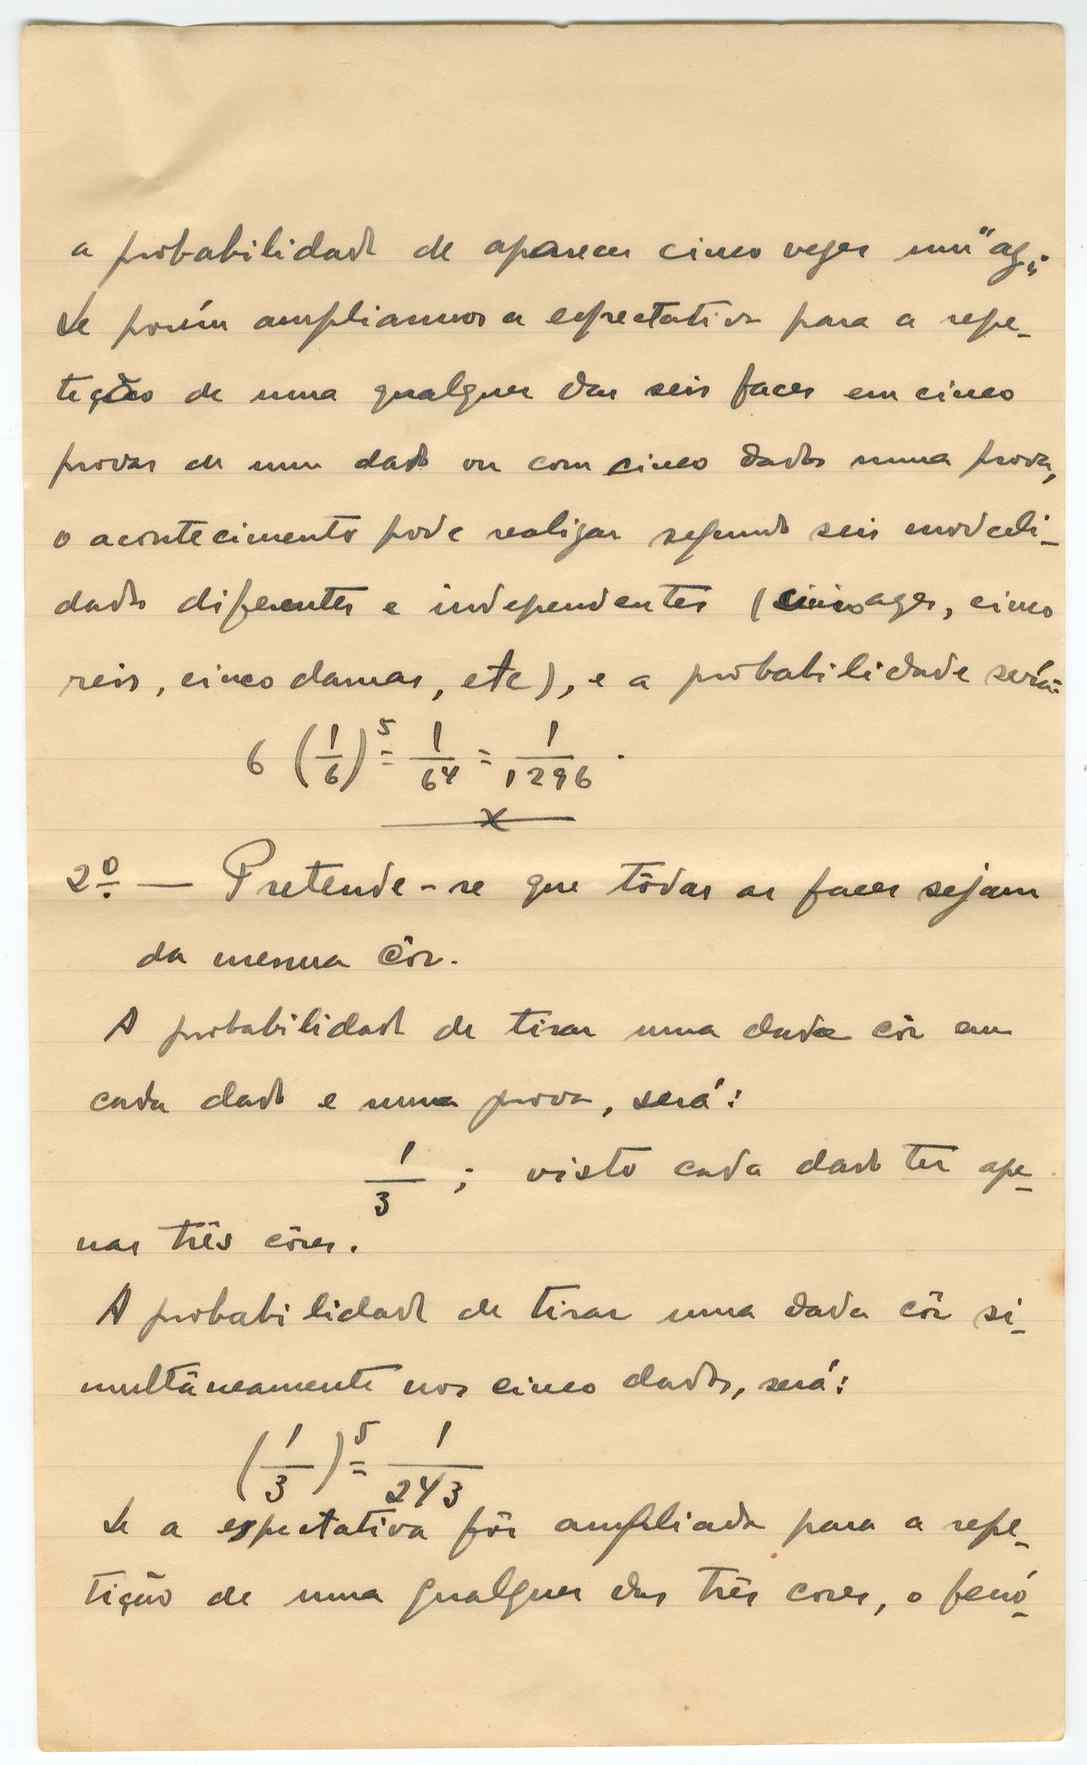 a probabilidade de aparecer cinco vezes um "az"
Se porém ampliarmos a espectativa para a repe-
tição de uma qualquer das seis faces em cinco
provas de um dado ou com cinco dados numa prova,
o acontecimento pode realizar segundo seis modali-
dades diferentes e independentes (cinco azes, cinco
reis, cinco damas, etc), e a probabilidade será:
6 (1/6)^5 = 1/6^4 = 1/1296.
x
2º — Pretende-se que tôdas as faces sejam
da mesma côr.
A probabilidade de tirar uma dada côr em
cada dado e numa prova, será:
1/3 ; visto cada dado ter ape-
nas três côres.
A probabilidade de tirar uma dada côr si-
multâneamente nos cinco dados, será:
(1/3)^5 = 1/243
Se a espectativa fôr ampliada para a repe-
tição de uma qualquer das três cores, o fenó-